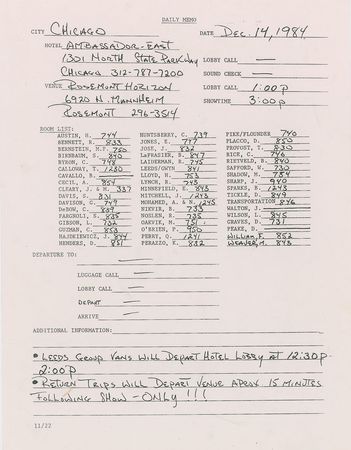 DAILY MEMO
CITY CHICAGO DATE DEC. 14, 1984
HOTEL AMBASSADOR-EAST
1301 NORTH STATE PARKWAY LOBBY CALL —
CHICAGO 312-787-7200 SOUND CHECK —
VENUE ROSEMONT HORIZON LOBBY CALL 1:00 P
6920 N. MANNHEIM SHOWTIME 3:00 P
ROSEMONT 296-3514
ROOM LIST:
AUSTIN, H. 744 HUNTSBERRY, C. 739 PIKE/FLOUNDER 740
BENNETT, R. 833 JONES, E. 747 PLACCO, D. 850
BERNSTEIN, M.F. 750 JOSE, J. 832 PROVOST, T. 830
BIRNBAUM, S. 840 LaFRASIER, B. 847 RICE, C. 746
BYRON, C. 748 LAIHERMAN, R. 745 RIETVELD, B. 840
CALLOWAY, T. 1230 LEEDS/GWYN 841 SAFFORD, W. 730
CAVALLO, B. — LLOYD, H. 753 SHADOW, M. 754
CECIL, A. 854 LYNCH, R. 745 SHARP, J. 940
CLEARY, J. & M. 337 MINNEFIELD, E. 843 SPARKS, B. 1243
DAVIS, S. 831 MITCHELL, J. 1243 TICKLE, R. 849
DAVISON, G. 749 MOHAMED, A. & N. 1245 TRANSPORTATION 846
DeBOW, C. 839 NIKVIB, B. 733 WALTON, J.
FARGNOLI, S. 835 NOSLEN, R. 735 WILSON, B. 845
GIBSON, L. 732 OAKVIE, M. 751 GRAVES, D. 731
GUZMAN, C. 853 O'BRIEN, P. 950 PEAKE, D.
HAJDKIEWICZ, J. 844 PERRY, Q. 1241 WILLIAM, F. 852
HENDERS, D. 831 PERAZZO, K. 832 WEAVER, M. 843
DEPARTURE TO: —
LUGGAGE CALL —
LOBBY CALL —
DEPART —
ARRIVE —
ADDITIONAL INFORMATION:
• LEEDS GROUP VANS WILL DEPART HOTEL LOBBY AT 12:30 P
2:00 P
• RETURN TRIPS WILL DEPART VENUE APROX 15 MINUTES
FOLLOWING SHOW - ONLY!!!
11/22